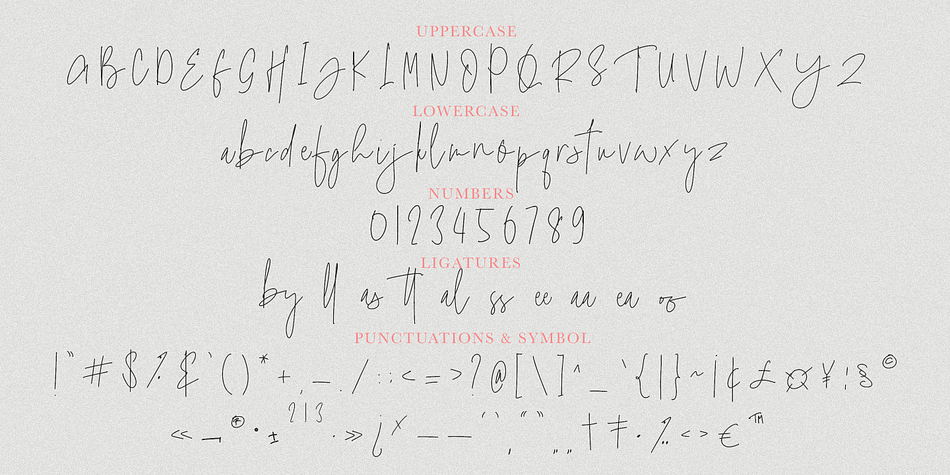 UPPERCASE
A B C D E F G H I J K L M N O P Q R S T U V W X Y Z
LOWERCASE
a b c d e f g h i j k l m n o p q r s t u v w x y z
NUMBERS
0 1 2 3 4 5 6 7 8 9
LIGATURES
by ll as tt al ss ee aa ea os
PUNCTUATIONS & SYMBOL
! " # $ % & ' ( ) * + , - . / : ; < = > ? @ [ \ ] ^ _ ` { | } ~ ¡ ¢ £ ¤ ¥ ¦ § ©
« ¬ ® ° ± ² ¹ ³ · » ¿ × – — ‘ ’ ‚ “ ” „ † ‡ • ‰ ‹ › € ™